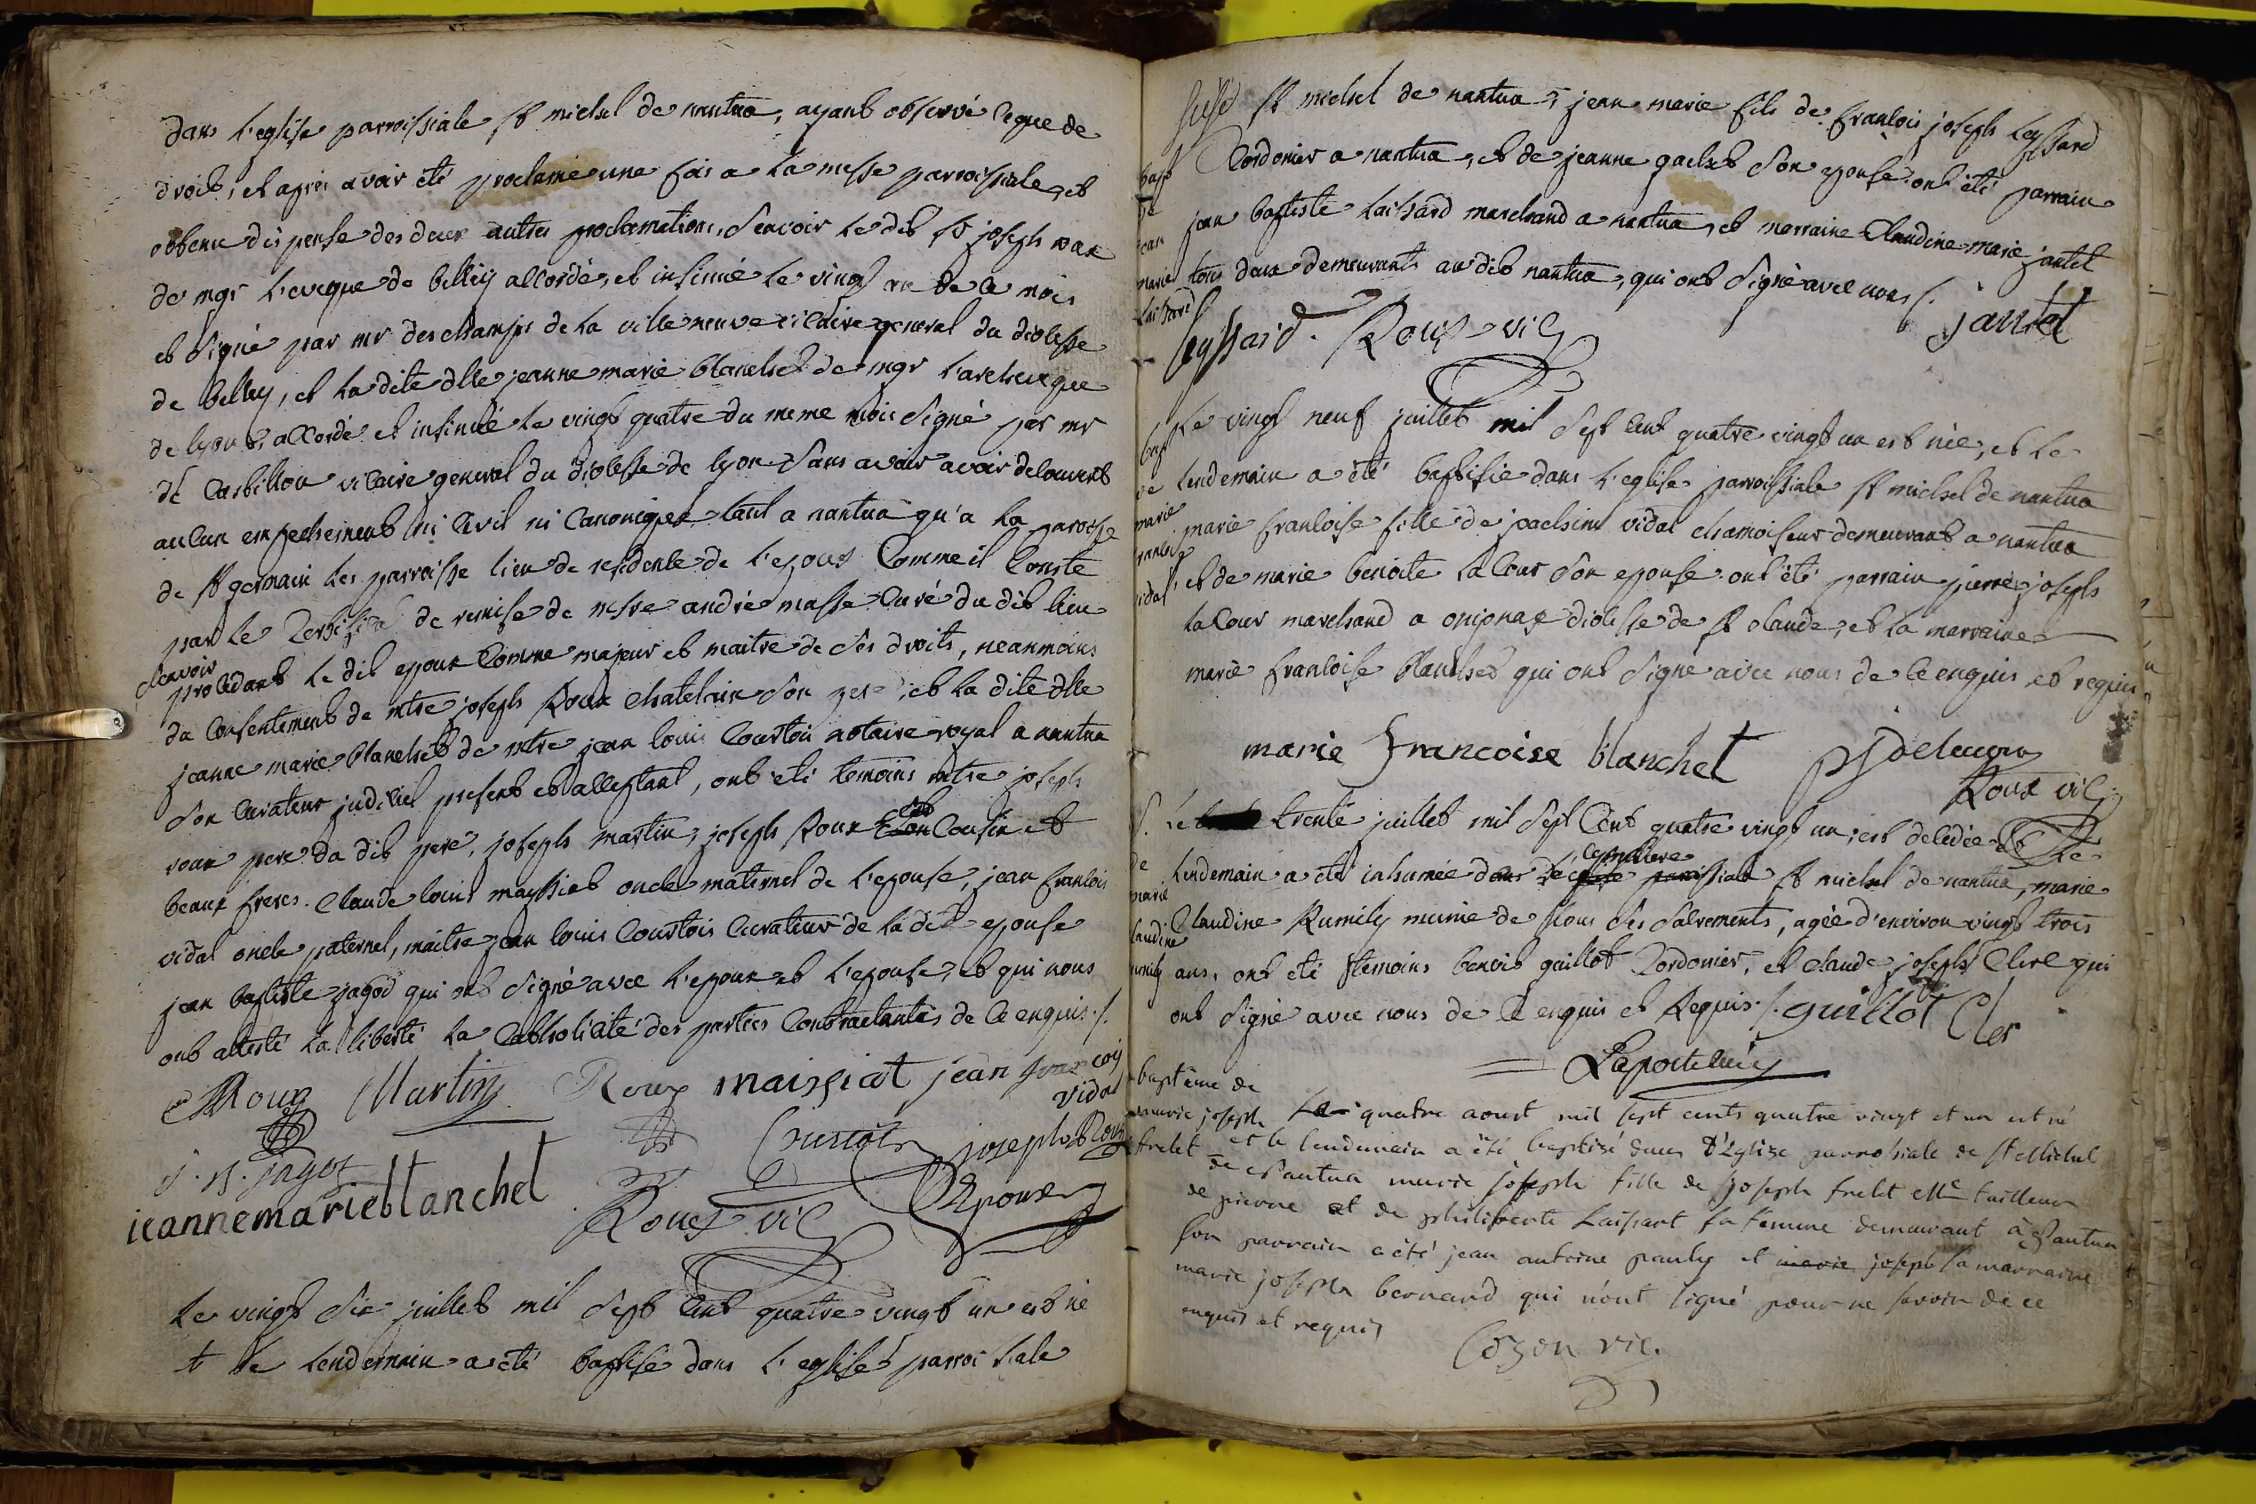 dans l'eglise parroissiale st michel de nantua, ayant observé ce que de
droit, et aprés avoir eté proclamé une fois a la messe parroissiale, et
obtenu dispense des deux autres proclamations, scavoir le dit sr joseph roux
de mgr l'eveque de belley accordé, et insinué le vingt un de ce mois
et signé par mr deschamps de la villeneuve vicaire general du diocesse
de belley, et la dite dlle jeanne marie blanchet de mgr l'archeveque
de lyon accordé et insinué le vingt quatre du meme mois signé par mr
de Castillon vicaire general du diocesse de lyon sans avoir avoir decouvert
aucun empechement ni Civil ni Canonique tant a nantua qu'a la paroisse
de st germain les parroisse lieu de residence de l'epoux Comme il Conste
par le Certificat de remise de mesre andré masse Curé du dit lieu
scavoir
procedant le dit epoux Comme majeur et maitre de ses droits, neanmoins
du Consentement de mtre joseph Roux chatelain son pere, et la dite dlle
jeanne marie blanchet de mtre jean louis Courtois notaire royal a nantua
son Curateur judiciel present et acceptant, ont eté temoins mtre joseph
roux pere du dit pere, joseph martin, joseph Roux Cousin et
beaux freres. Claude louis mayssiat oncle maternel de l'epouse, jean francois
vidal oncle paternel, maitre jean louis Courtois Curateur de la dite epouse
jean baptiste jagod qui ont signé avec l'epoux et l'epouse, et qui nous
ont attesté la liberté la Catholicité des parties Contractantes de Ce enquis./.
Roux Martin Roux maissiat jean francois
vidal
j. b. jagot Courtois joseph Roux
jeanne marie blanchet Roux vic Epoux
Le vingt six juillet mil sept Cent quatre vingt un est né
et le lendemain a eté baptisé dans l'eglise parroissiale
st michel de nantua jean marie fils de francois joseph Leyssard
bapt Cordonier a nantua, et de jeanne gachet son epouse ont eté parrain
de
jean jean baptiste Laissard marchand a nantua, et marraine Claudine marie jantet
marie tous deux demeurants au dit nantua, qui ont signé avec nous /.
Laissard
leyssard. Roux vic jantet
bapt Le vingt neuf juillet mil sept Cent quatre vingt un est née, et le
de lendemain a eté baptisée dans l'eglise parroissiale st michel de nantua
marie marie francoise fille de joachim vidal chamoiseur demeurant a nantua
francoise
vidal et de marie benoite laCour son epouse ont eté parrain pierre joseph
laCour marchand a onionax diocesse de st claude, et la marraine
marie francoise blanchet qui ont signé avec nous de Ce enquis et requis
marie francoise blanchet pj delacour
Roux vic
S. Le trente juillet mil sept Cent quatre vingt un, est decedée et le
Cemetiere
de lendemain a eté inhumée dans le eglise parroissiale st michel de nantua, marie
marie
Claudine Claudine Rumily munie de tous ses sacrements, agée d'environ vingt trois
rumily ans, ont eté temoins benoit guillot Cordonier, et claude joseph Clerc qui
ont signé avec nous de Ce enquis et Requis./. guillot Cler
Laporte
baptême de
marie joseph Le quatre aoust mil sept cents quatre vingt et un est né
frelet et le lendemain a été baptisé dans l'église parrossiale de st Michel
de Nantua marie joseph fille de joseph frelet Mtre tailleur
de pierre et de philiberte Laissart sa femme demeurant à Nantua
son parrain a été jean antoine pauly et marie joseph sa marraine
marie joseph bernard qui n'ont signé pour ne savoir de ce
enquis et requis
Cozon vic.